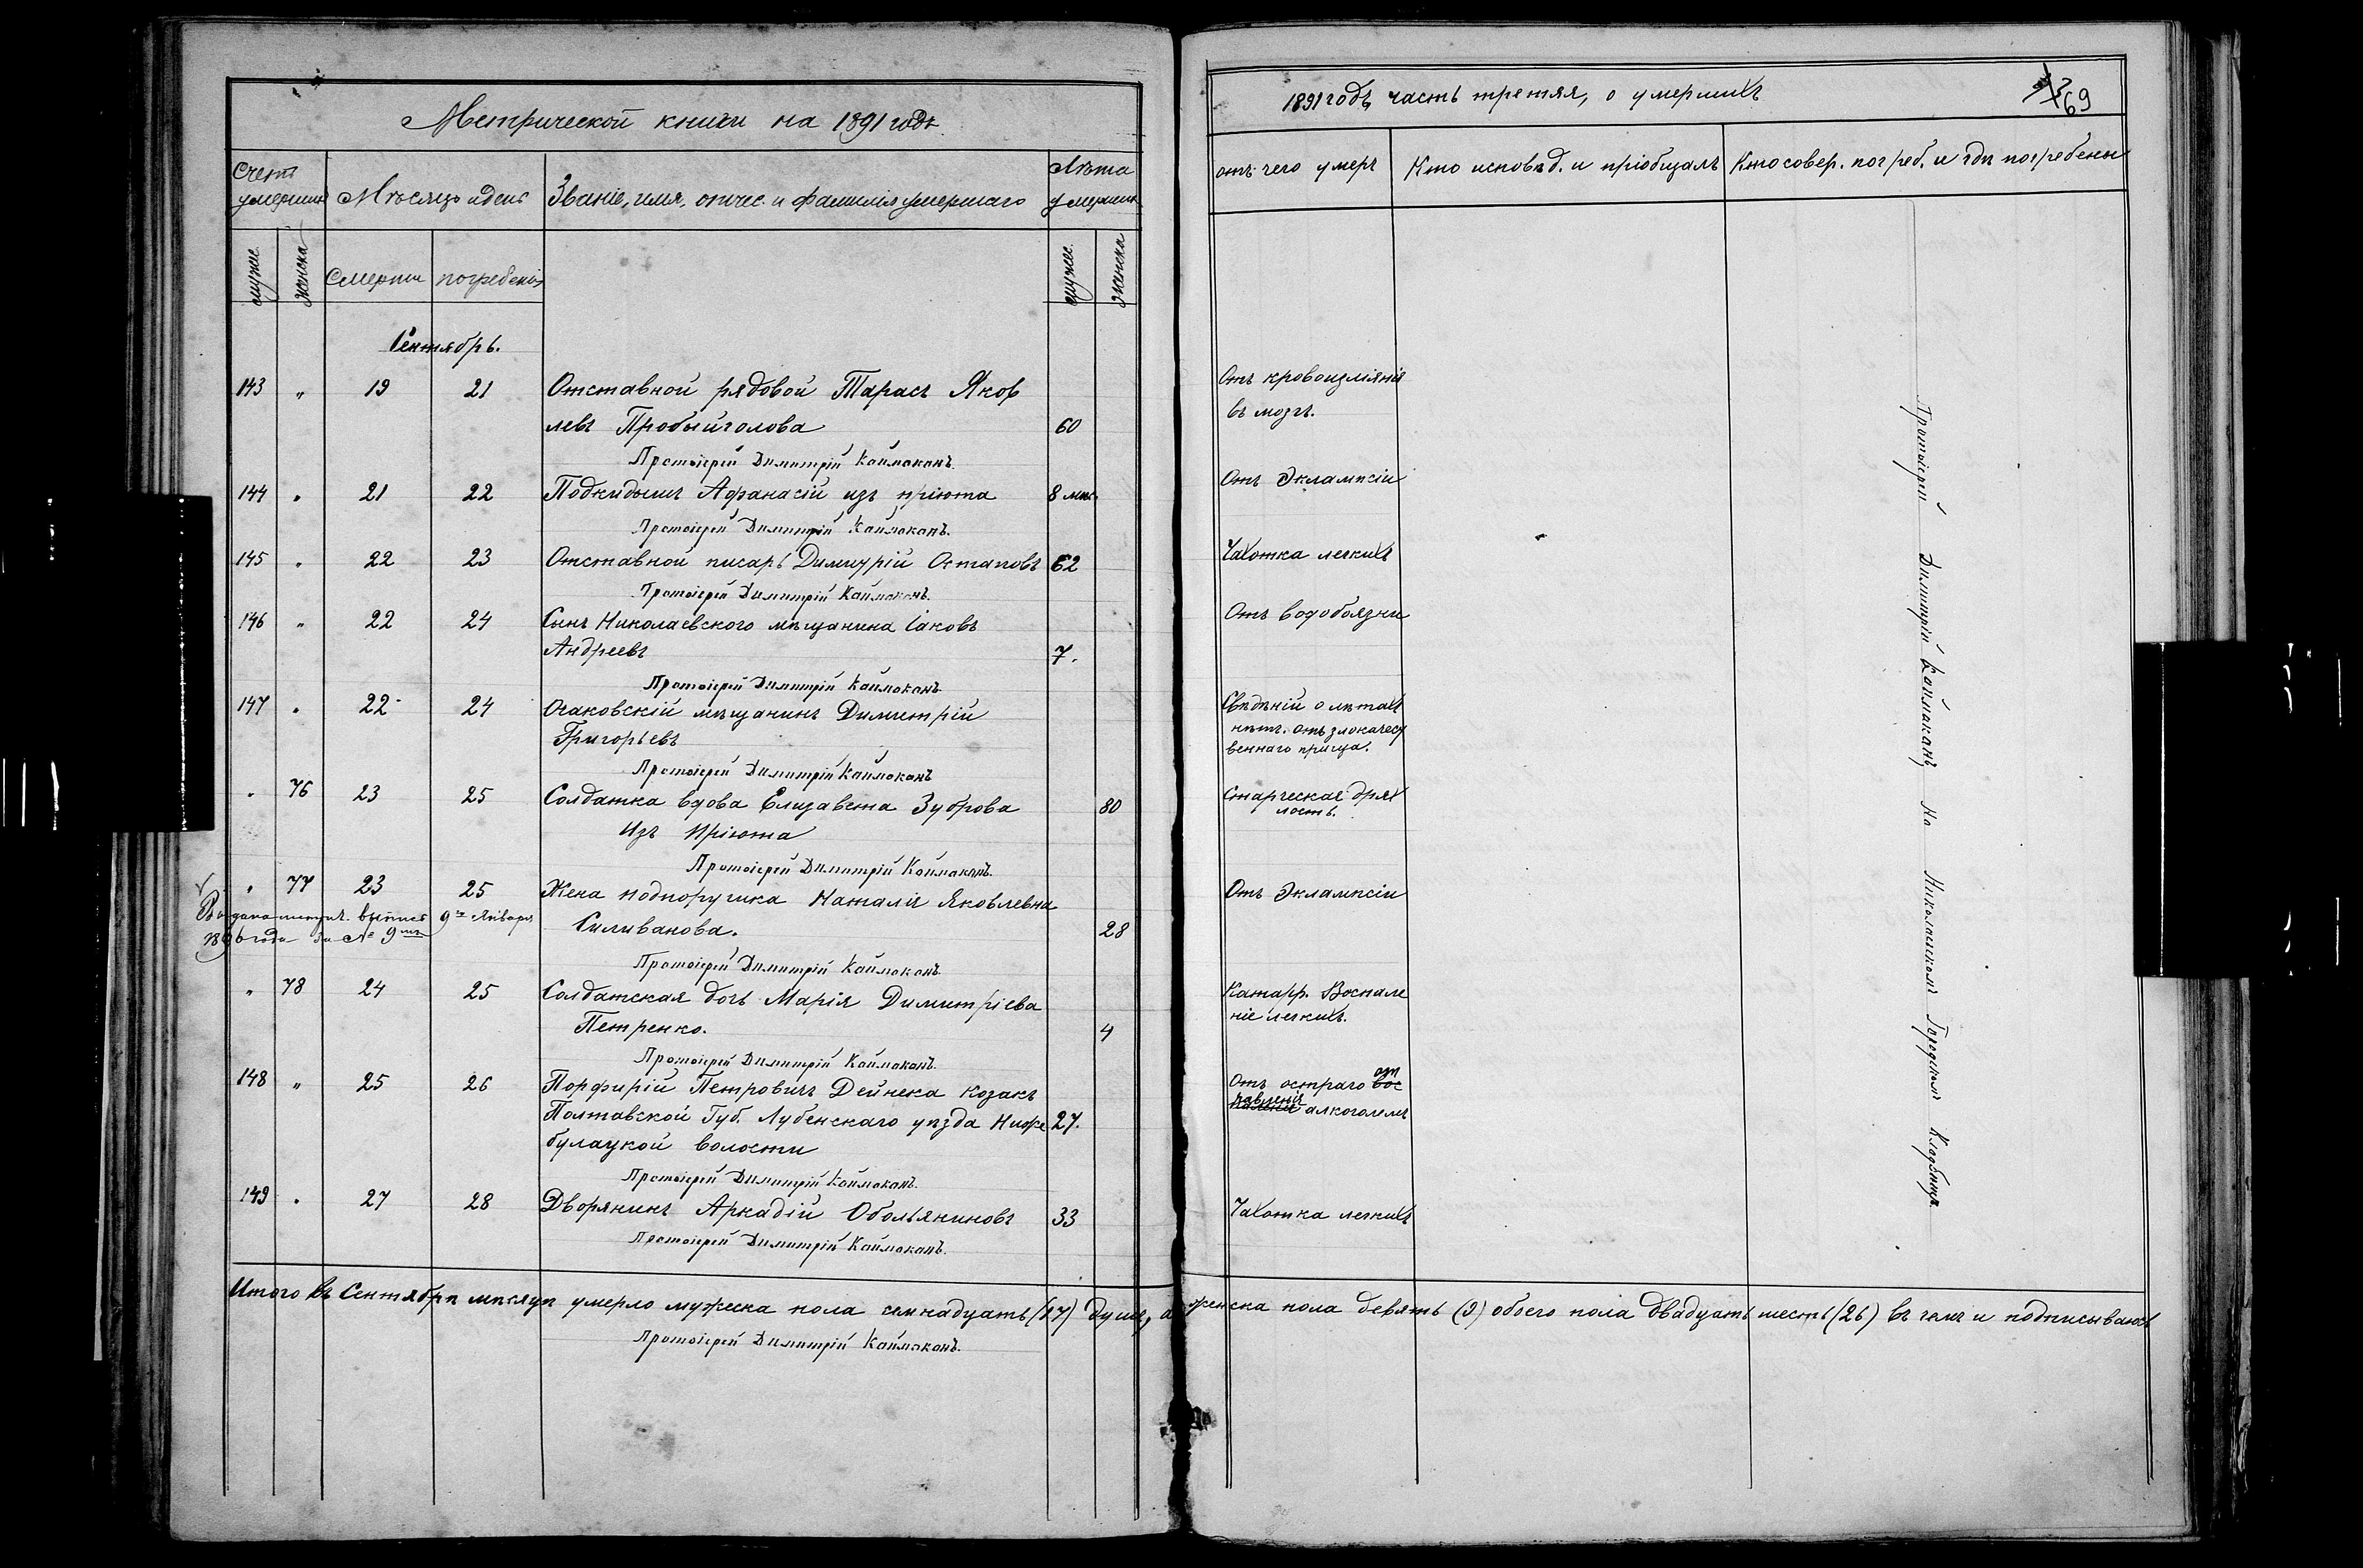 Метрической книги на 1891 годъ
Счетъ умершихъ
Мѣсяцъ и день
Званіе, имя, отчес. и фамилія умершаго
Лѣта умершихъ
мужес
женска
Смерти
погребенія
мужес
женска
Сентябрь.
143 " 19 21 Отставной рядовой Тарасъ Яков
левъ Пробыйголова 60
Протоіерей Димитрій Каймаканъ.
144 " 21 22 Подкидышъ Афанасій изъ пріюта 8 мѣс.
Протоіерей Димитрій Каймаканъ.
145 " 22 23 Отставной писарь Димитрій Остаповъ 62
Протоіерей Димитрій Каймаканъ.
146 " 22 24 Сынъ Николаевского мѣщанина Іаковъ
Андреевъ 7.
Протоіерей Димитрій Каймаканъ.
147 " 22 24 Очаковскій мѣщанинъ Димитрій
Григорьевъ
Протоіерей Димитрій Каймаканъ
" 76 23 25 Солдатка вдова Елизавета Зуброва 80
Изъ Пріюта
Протоіерей Димитрій Каймаканъ.
" 77 23 25 Жена подпоручика Наталія Яковлевна
Выдана метрич. выпись 9го Января
1896 года за № 9мъ
Силиванова. 28
Протоіерей Димитрій Каймаканъ.
" 78 24 25 Солдатская дочь Марія Димитріева
Петренко. 4
Протоіерей Димитрій Каймаканъ.
148 " 25 26 Порфирій Петровичъ Дейнека козакъ
Полтавской Губ. Лубенскаго уѣзда Ниже 27.
булацкой волости
Протоіерей Димитрій Каймаканъ.
149 " 27 28 Дворянинъ Аркадій Обольяниновъ 33
Протоіерей Димитрій Каймаканъ.
Итого въ Сентябрѣ мѣсяцѣ умерло мужеска пола семнадцать (17) душъ, а женска пола девять (9) обоего пола двадцать шесть (26) въ чемъ и подписываюсь
Протоіерей Димитрій Каймаканъ.
1891 годъ, часть третяя, о умершихъ
69
отъ чего умеръ
Кто исповѣд. и пріобщалъ
Кто совер. погреб. и гдѣ погребены
Отъ кровоизліянія
въ мозгъ.
Отъ Эклампсіи
Чахотка легкихъ
Отъ водобоязни
Свѣдѣній о лѣтахъ
нѣтъ. Отъ злокачест
веннаго прища.
Старческая дрях
лость.
Отъ Эклампсіи
Катарр. Воспале
ніе легкихъ.
Отъ остраго вос от
паленія равленія алкоголемъ
Чахотка легкихъ
Протоіерей Димитрій Каймаканъ На Николаевскомъ Городскомъ Кладбищѣ